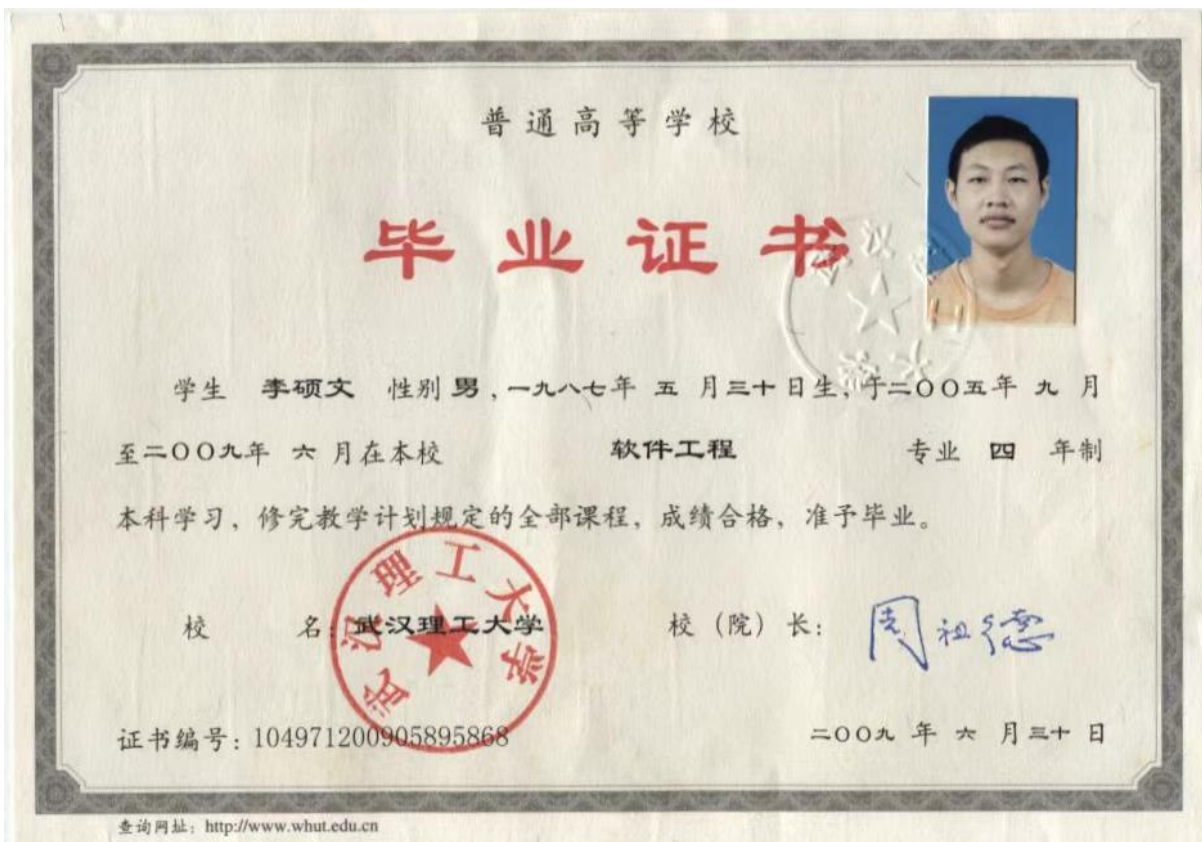 普通高等学校
毕业证书
学生 李硕文 性别 男,一九八七年 五 月三十日生, 于二〇〇五年 九 月
至二〇〇九年 六 月在本校 软件工程 专业 四 年制
本科学习, 修完教学计划规定的全部课程, 成绩合格, 准予毕业。
校 名: 武汉理工大学 校 (院) 长: 周祖德
武汉理工大学
证书编号: 104971200905895868 二〇〇九 年 六 月三十日
查询网址: http://www.whut.edu.cn